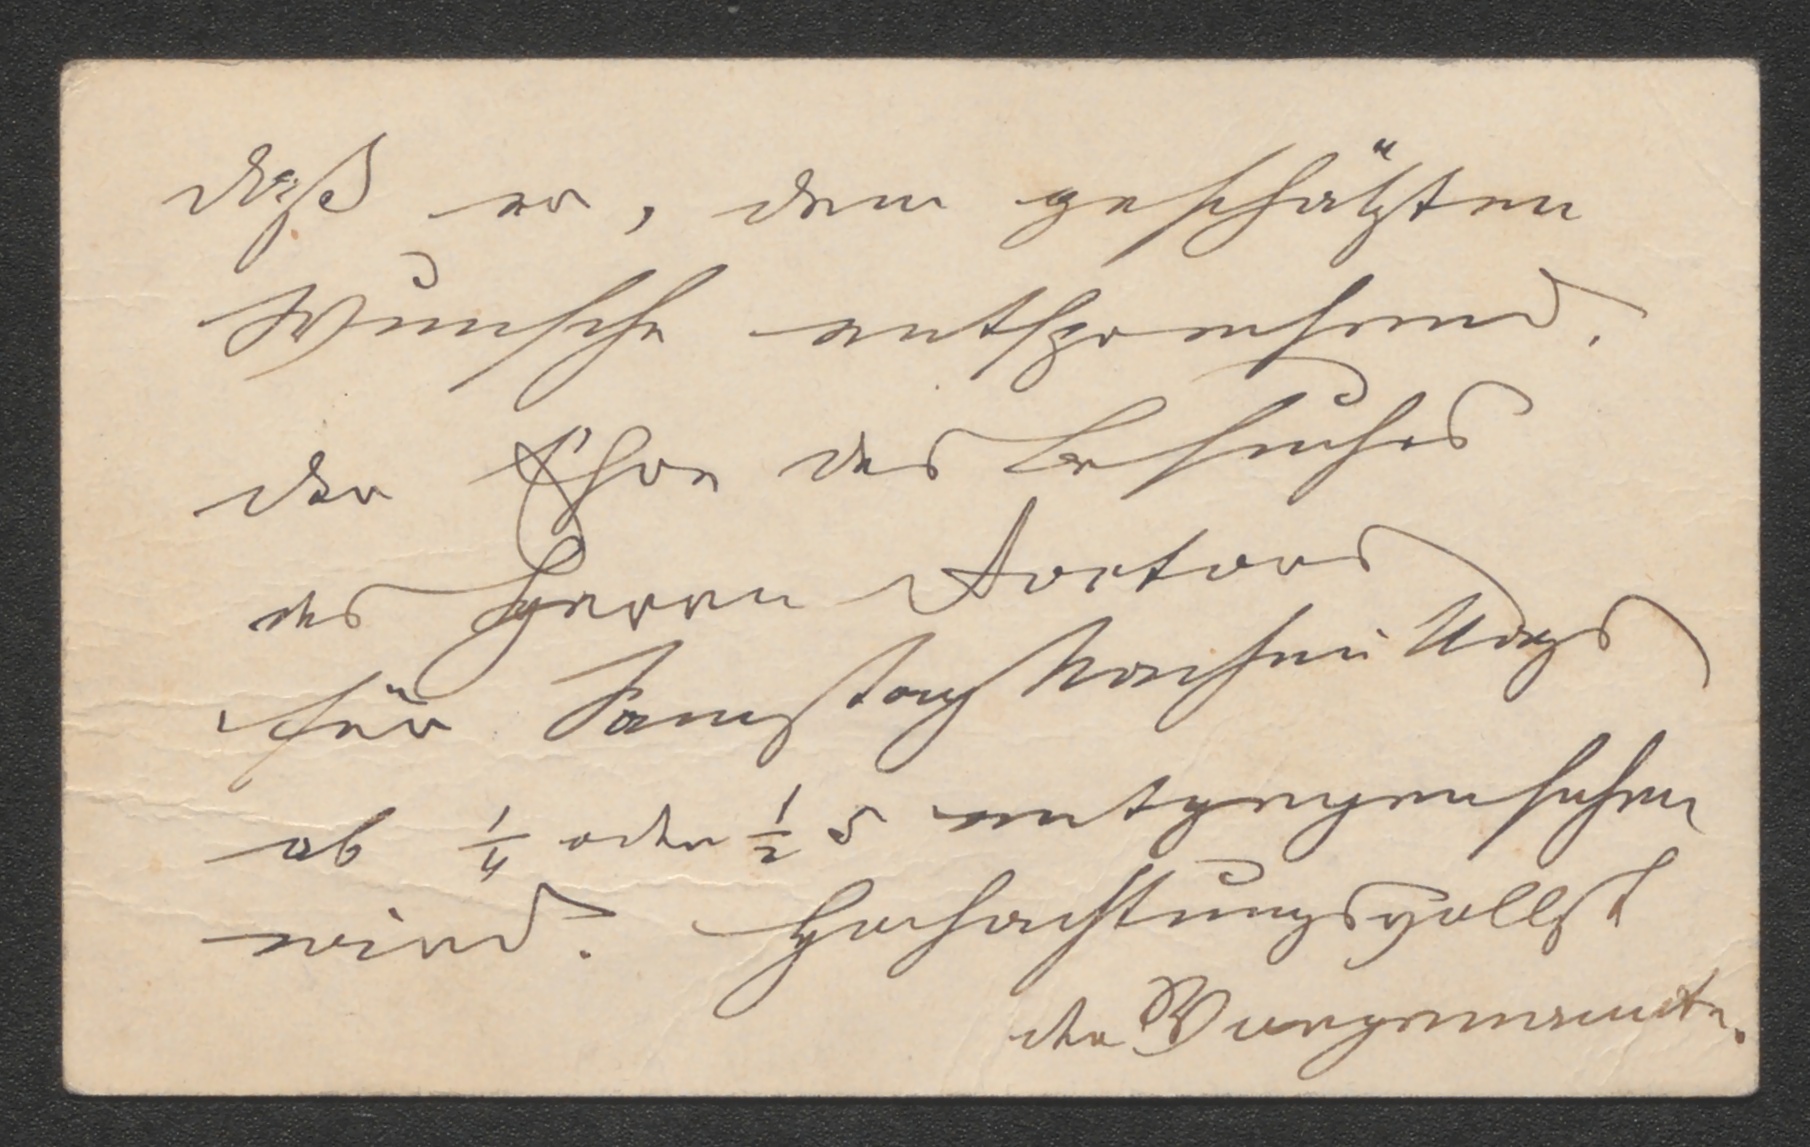 daß er, dem geschätzten
Wunsche entsprechend,
der Ehre des Besuches
des Herrn Doctors
für Samstag Nachmittags
ab 1/4 oder 1/2 5 entgegensehen
wird. Hochachtungsvollst
der Vorgenannte.